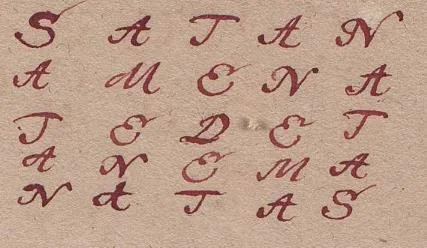 S A T A N
A M E N A
T E D E T
A N E M A
N A T A S